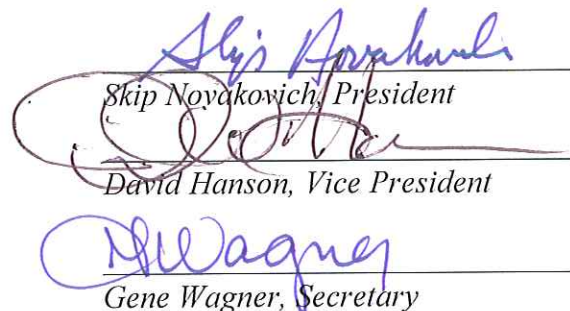 Skip Novakovich
Skip Novakovich, President
David Hanson, Vice President
Wagner
Gene Wagner, Secretary